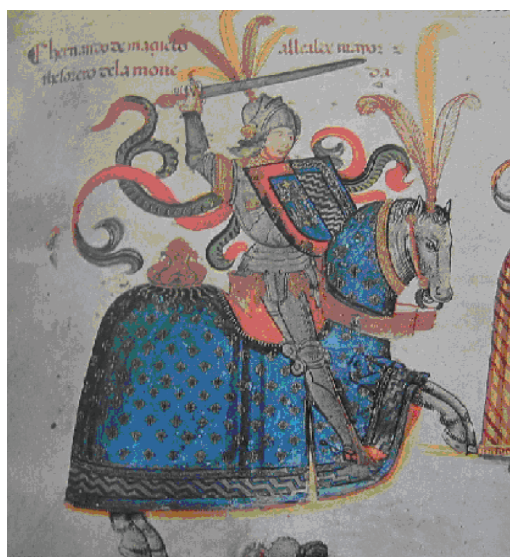 hernando de maçuelo allcalde mayor
thesorero dela mone da